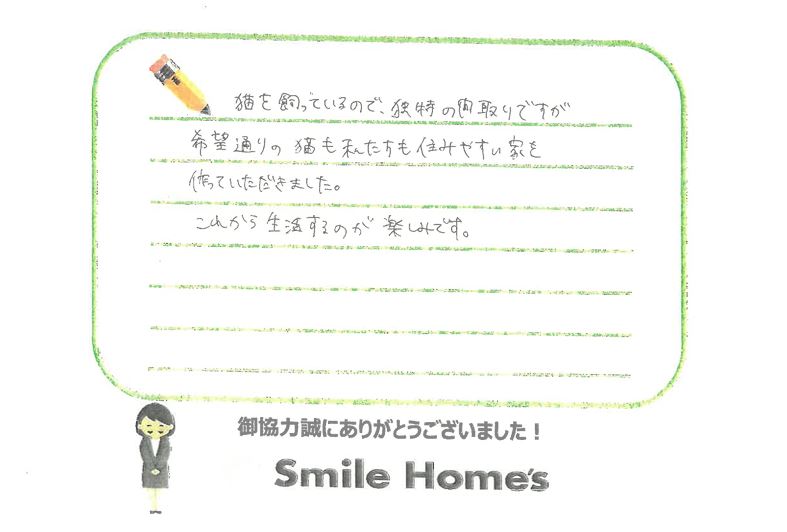 猫を飼っているので、独特の間取りですが
希望通りの猫も私たちも住みやすい家を
作っていただきました。
これから生活するのが楽しみです。
御協力誠にありがとうございました！
Smile Home's